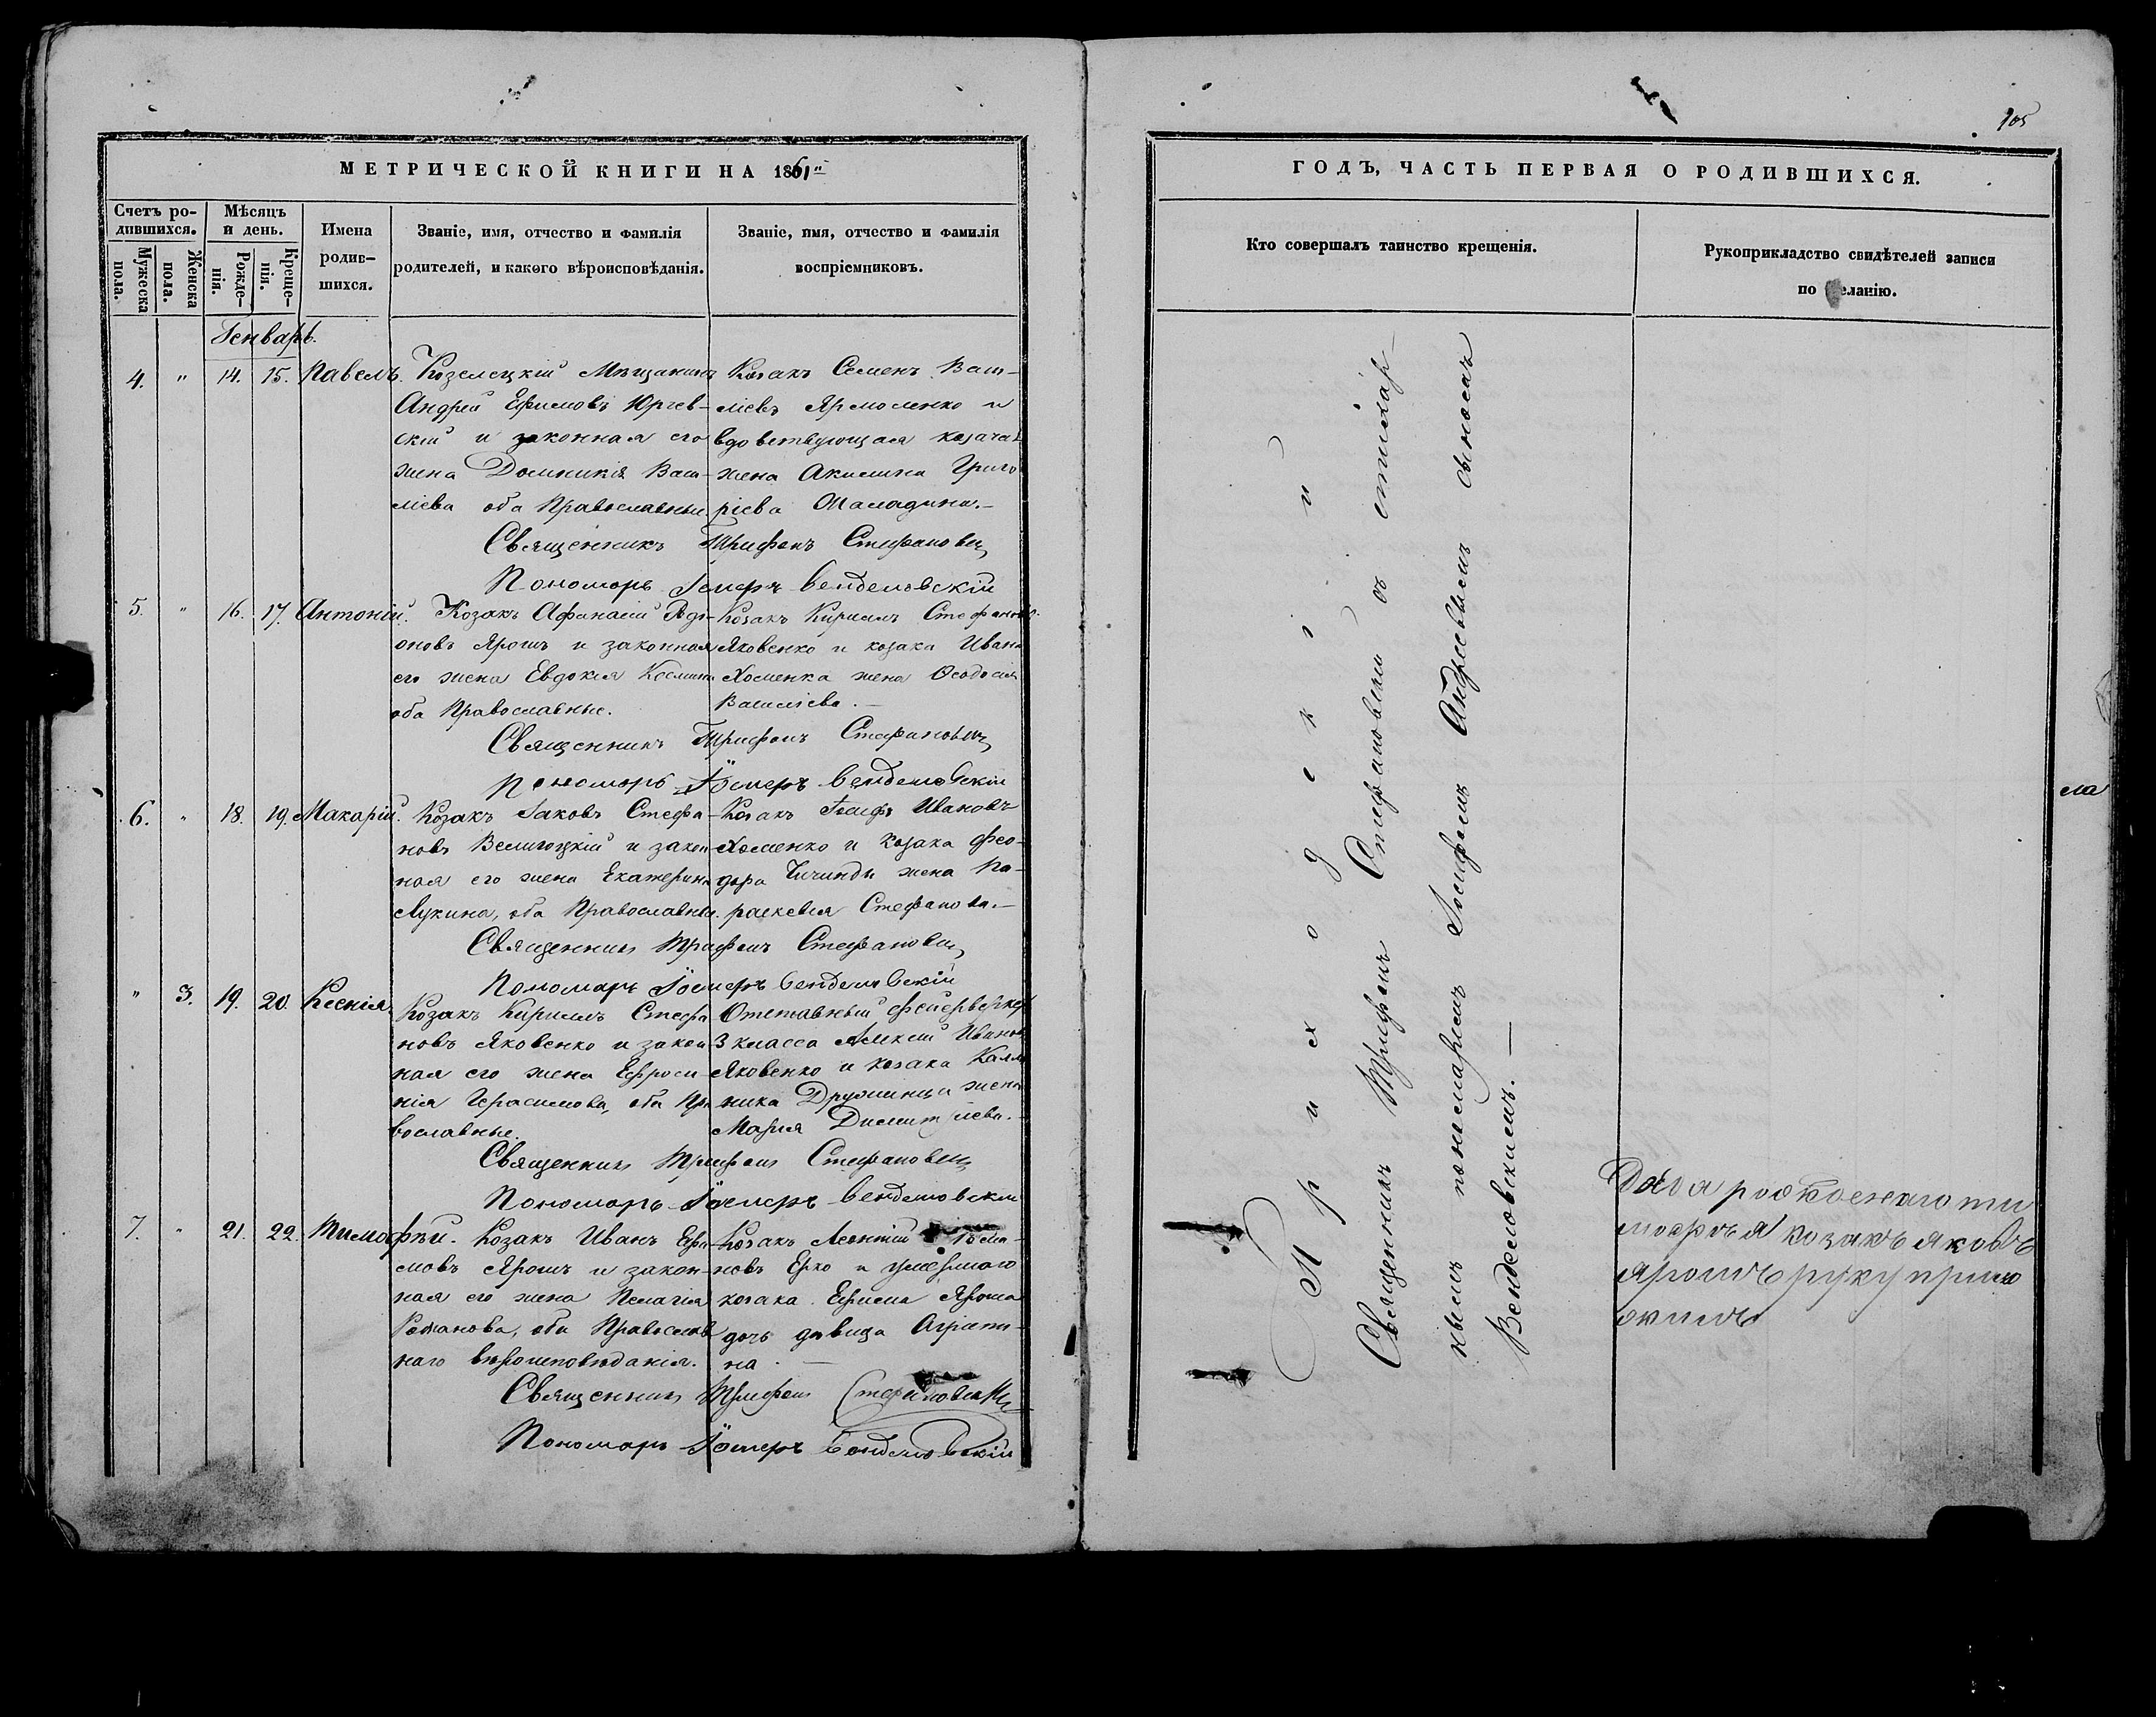 105
МЕТРИЧЕСКОЙ КНИГИ НА 1861й
ГОДЪ, ЧАСТЬ ПЕРВАЯ О РОДИВШИХСЯ.
Счетъ ро-
дившихся.
Мужеска
пола.
Женска
пола.
Мѣсяцъ
и день.
Рожде-
нія.
Креще-
нія.
Имена
родив-
шихся.
Званіе, имя, отчество и фамилія
родителей, и какого вѣроисповѣданія.
Званіе, имя, отчество и фамилія
воспріемниковъ.
Кто совершалъ таинство крещенія.
Рукоприкладство свидѣтелей записи
по желанію.
Генварь.
4. " 14. 15. Павелъ.
Козелецкій Мѣщанинъ
Андрей Ефимовъ Юрьев-
скій и законная его
жена Домникія Васи-
ліева оба Православные
Козакъ Семенъ Васи-
ліевъ Ярмоленко и
вдовствующая козачая
жена Акилина Григо
ріева
Священникъ Трифонъ Стефановичъ
Пономарь Іосифъ Венделовскій
5. " 16. 17. Антоній.
Козакъ Афанасій Роді-
оновъ Ярошъ и законная
его жена Евдокія Космина
оба Православные.
Козакъ Кириллъ Стефановъ
Яковенко и козака Ивана
Хоменка жена Ѳеодосія
Василіева.
Священникъ Трифонъ Стефановичъ
Пономарь Іосифъ Венделовскій
6. " 18. 19. Макарій.
Козакъ Іаковъ Стефа-
новъ Велигоцкій и закон-
ная его жена Екатерина
Лукина, оба Православные.
Козакъ Іосифъ Ивановъ
Хоменко и козака Фео-
дора жена Па-
раскевія Стефанова.
Священникъ Трифонъ Стефановичъ
Пономарь Іосифъ Венделовскій
" 3. 19. 20. Ксенія.
Козакъ Кириллъ Стефа
новъ Яковенко и закон
ная его жена Ефроси-
нія Герасимова, оба Пра
вославные.
Отставный фейерверкеръ
3 класса Алексій Ивановъ
Яковенко и козака Калли
ника Дружинца жена
Марія Димитріева.
Священникъ Трифонъ Стефановичъ
Пономарь Іосифъ Венделовскій
7. " 21. 22. Тимофѣй.
Козакъ Иванъ Ефи-
мовъ Ярошъ и закон-
ная его жена Пелагія
Романова, оба Православ
наго вѣроисповѣданія.
Козакъ Леонтій Рома-
новъ Ерко и умершаго
козака Ефима Яроша
дочь дѣвица Агрипи-
на.
Священникъ Трифонъ Стефановичъ
Пономарь Іосифъ Венделовскій
Приходскій
Священникъ Трифонъ Стефановичъ съ стихар-
нымъ пономаремъ Іосифомъ Андреевымъ сыномъ
Венделовскимъ.
рожденаго ти
мофѣя козакъ яковъ
ярошъ руку прило
жилъ
ла